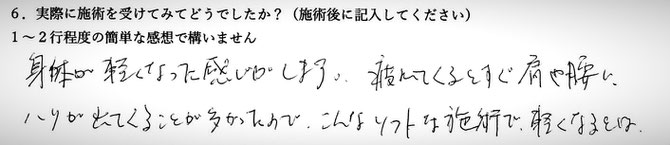 6．実際に施術を受けてみてどうでしたか？（施術後に記入してください）
1～2行程度の簡単な感想で構いません
身体が軽くなった感じがします。疲れてくるとすぐ肩や腰に
ハリが出てくることが多かったので、こんなソフトな施術で、軽くなるとは、